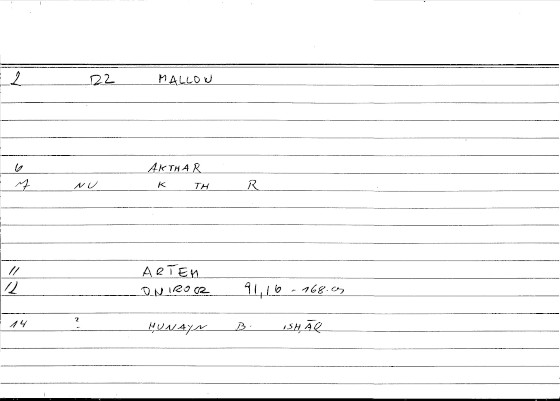 2 D2 MALLOU
6 AKTHAR
7 NU K TH R
11 ARTEM
12 ONIROCR 91,16 - 168.
14 ? HUNAYN B. ISHĀQ